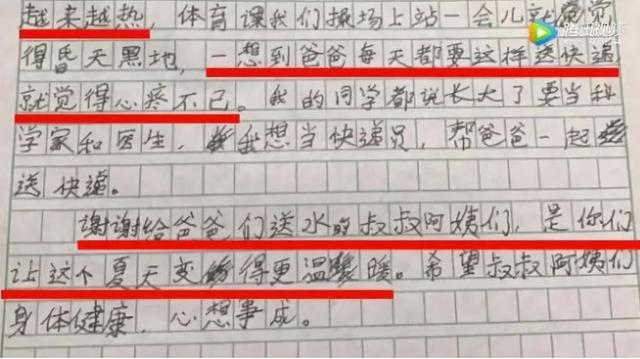 越来越热，体育课我们操场上站一会儿就觉
腾讯视频
得昏天黑地，一想到爸爸每天都要这样送快递
就觉得心疼不已。我的同学都说长大了要当科
学家和医生，我想当快递员，帮爸爸一起
送快递。
谢谢给爸爸们送水的叔叔阿姨们，是你们
让这个夏天变得更温暖。希望叔叔阿姨们
身体健康，心想事成。